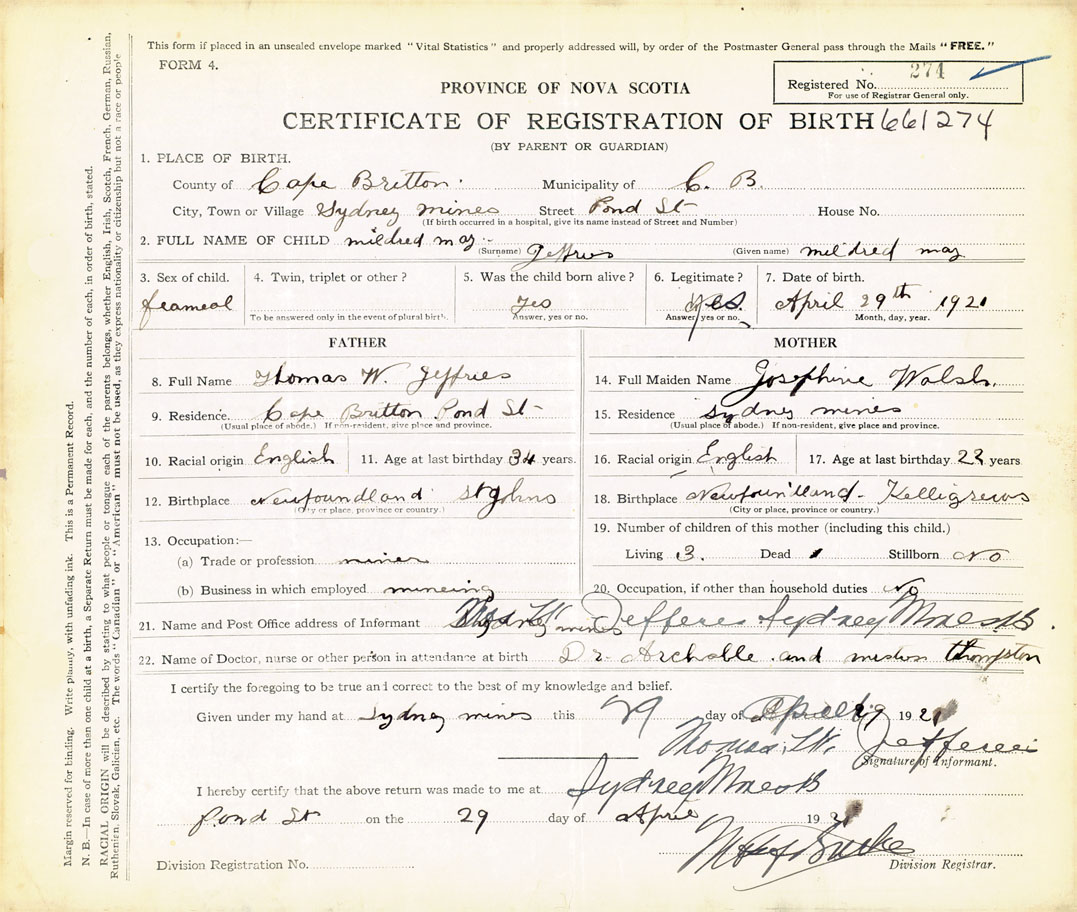 This form if placed in an unsealed envelope marked "Vital Statistics" and properly addressed will, by order of the Postmaster General pass through the Mails "FREE."
FORM 4.
274
Registered No.
For use of Registrar General only.
PROVINCE OF NOVA SCOTIA
CERTIFICATE OF REGISTRATION OF BIRTH 661274
(BY PARENT OR GUARDIAN)
1. PLACE OF BIRTH.
County of Cape Britton Municipality of C. B.
City, Town or Village Sydney mines Street Pond St House No.
(If birth occurred in a hospital, give its name instead of Street and Number)
2. FULL NAME OF CHILD mildred may (Surname) Jeffries (Given name) mildred may
3. Sex of child. 4. Twin, triplet or other? 5. Was the child born alive? 6. Legitimate? 7. Date of birth.
feameal yes yes. April 29th 1921
To be answered only in the event of plural birth. Answer, yes or no. Answer, yes or no. Month, day, year.
FATHER
8. Full Name Thomas W. Jeffries
9. Residence. Cape Britton Pond St
(Usual place of abode.) If non-resident, give place and province.
10. Racial origin English 11. Age at last birthday 34 years.
12. Birthplace Newfoundland St Johns
(City or place, province or country.)
13. Occupation:—
(a) Trade or profession miner
(b) Business in which employed mineing
MOTHER
14. Full Maiden Name Josephine Walsh.
15. Residence Sydney mines
(Usual place of abode.) If non-resident, give place and province.
16. Racial origin English 17. Age at last birthday 22 years
18. Birthplace Newfoundland - Kelligrews
(City or place, province or country.)
19. Number of children of this mother (including this child.)
Living 3. Dead Stillborn No
20. Occupation, if other than household duties No
21. Name and Post Office address of Informant Jefferes Sydney
22. Name of Doctor, nurse or other person in attendance at birth Dr. Archable and thompston
I certify the foregoing to be true and correct to the best of my knowledge and belief.
Given under my hand at Sydney mines this 29 day of April 1921
Thomas. W. Jefferes
Signature of Informant.
I hereby certify that the above return was made to me at Sydney
Pond St on the 29 day of April 1921
Division Registration No. Division Registrar.
Margin reserved for binding. Write plainly, with unfading ink. This is a Permanent Record.
N. B.—In case of more than one child at a birth, a Separate Return must be made for each, and the number of each, in order of birth, stated.
RACIAL ORIGIN will be described by stating to what people or tongue each of the parents belongs, whether English, Irish, Scotch, French, German, Russian,
Ruthenian, Slovak, Galician, etc. The words "Canadian" or "American" must not be used, as they express nationality or citizenship but not a race or people